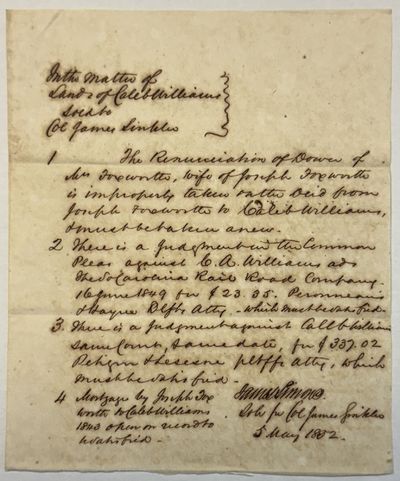 In the matter of
Lands of Caleb Williams
Sold to
Col James Sinkler
1 The Renunciation of Dower of
Mrs Foxworth, wife of Joseph Foxworth
is improperly taken on the Deed from
Joseph Foxworth to Caleb Williams,
& must be taken anew.
2 There is a Judgment in the Common
Pleas against C. A. Williams ads
The So Carolina Rail Road Company.
16 June 1849 for $ 23.35. Peronneau
& Hayne Defts Atty - which must be satisfied.
3. There is a Judgment against Caleb Williams
same Court, same date, for $ 337.02
Petigru & Lesesne pltffs Atty, which
must be satisfied.
4 Mortgage by Joseph Fox
worth to Caleb Williams
1843 open on record to
be satisfied -
James Simons
Solr for Col James Sinkler
5 May 1852.